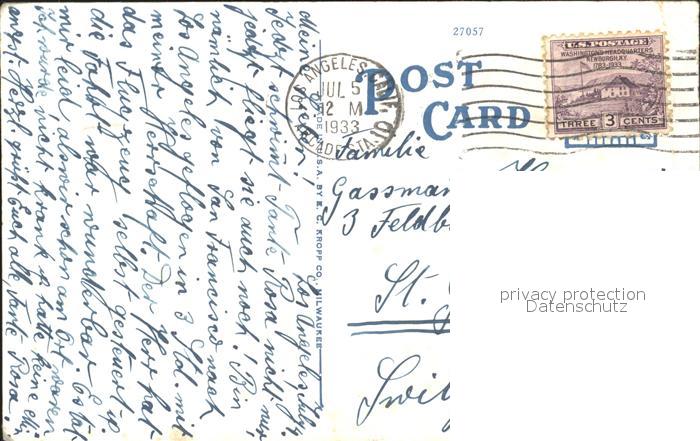 Los Angeles July 4
Meine Lieben!
Jetzt schwimmt Tante Rosa nicht nur
jetzt fliegt sie auch noch! Bin
nämlich von San Francisco nach
Los Angeles geflogen in 3 Std. mit
meiner Herrschaft. Der Herr hat
das Flugzeug selbst gesteuert u.
die Fahrt war wunderbar. Es tat
mir leid als wir schon am Ort waren
Ich wurde nicht krank & hatte keine
Angst. Herzl. grüßt Euch alle, Tante Rosa.
27057
POST
CARD
LOS ANGELES, CALIF.
JUL 5
12 M
1933
U.S. POSTAGE
WASHINGTON'S HEADQUARTERS
NEWBURGH, N.Y.
1783-1933
THREE 3 CENTS
MADE IN U.S.A. BY E. C. KROPP CO., MILWAUKEE
Familie
Gassman
3 Feldb
St.
Swi
privacy protection
Datenschutz